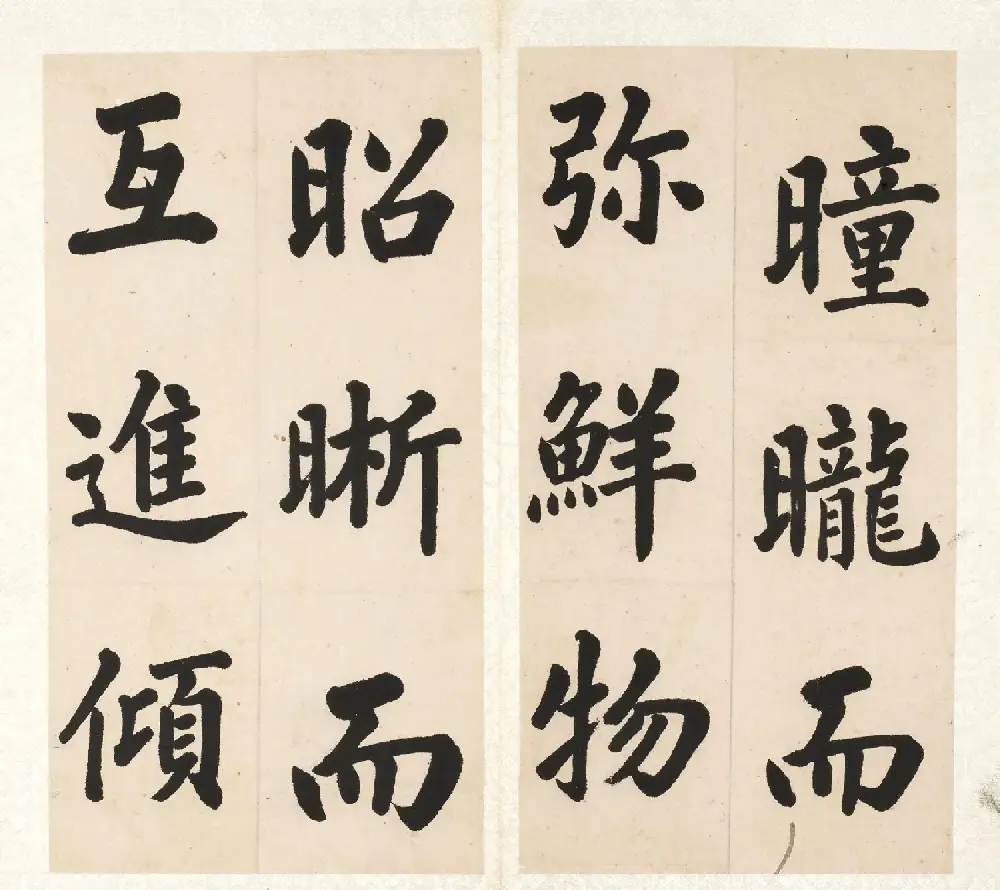 曈曨而
弥鮮物
昭晰而
互進傾